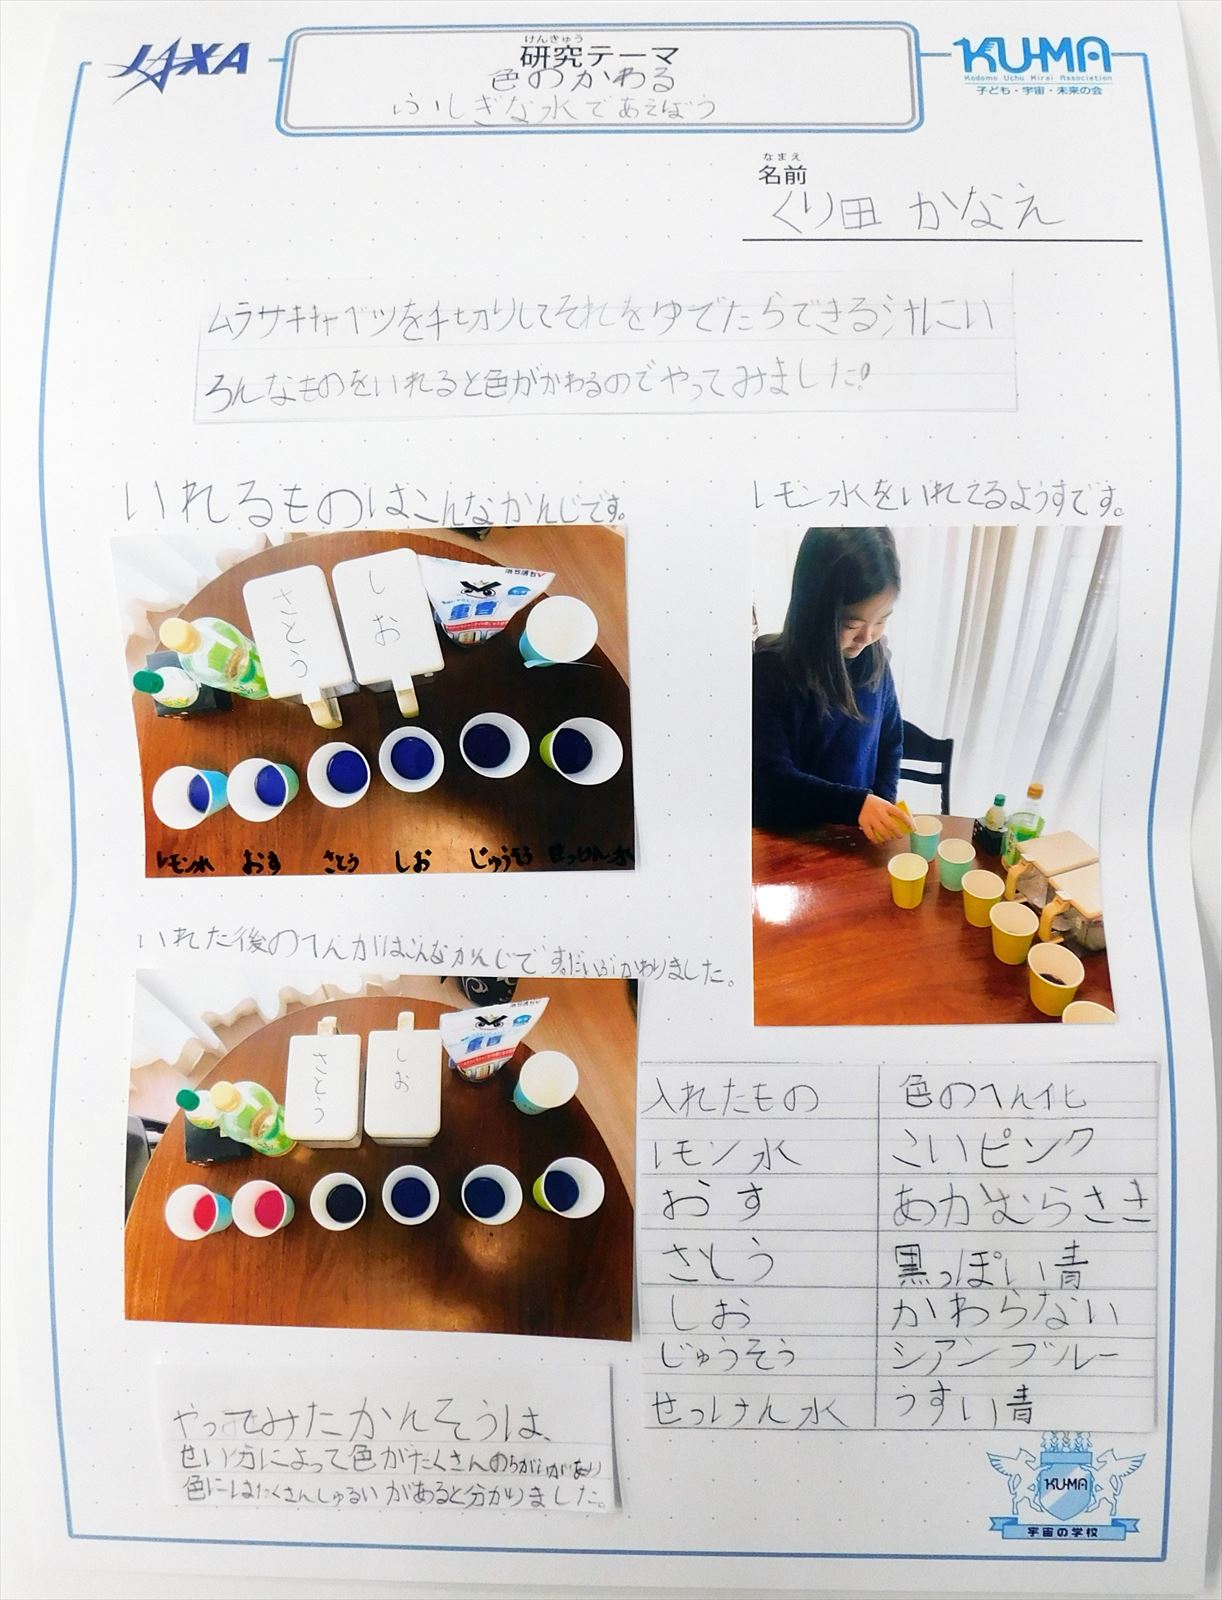 JAXA
けんきゅう
研究テーマ
色のかわる
ふしぎな水であそぼう
KU-MA
Kodomo Uchu Mirai Association
子ども・宇宙・未来の会
なまえ
名前
くり田 かなえ
ムラサキキャベツを千切りしてそれをゆでたらできる汁にい
ろんなものをいれると色がかわるのでやってみました。
いれるものはこんなかんじです。
さとう
しお
重曹
レモン水 おす さとう しお じゅうそう せっけん水
レモン水をいれてるようすです。
いれた後のへんかはこんなかんじです。だいぶかわりました。
さとう
しお
重曹
入れたもの 色のへん化
レモン水 こいピンク
おす あかむらさき
さとう 黒っぽい青
しお かわらない
じゅうそう シアンブルー
せっけん水 うすい青
やってみたかんそうは、
せい分によって色がたくさんのちがいがあり
色にはたくさんしゅるいがあると分かりました。
KU-MA
宇宙の学校